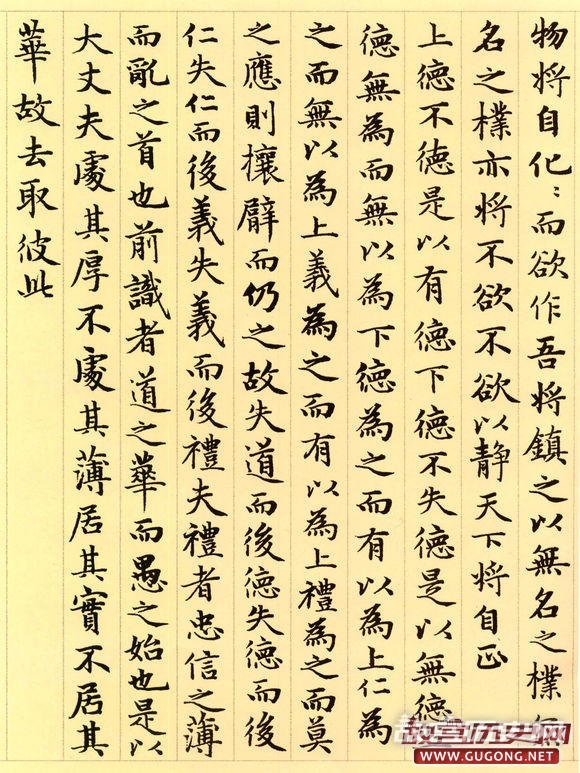 物将自化〻而欲作吾将鎮之以無名之樸無
名之樸亦将不欲不欲以静天下将自正
上德不德是以有德下德不失德是以無德
德無為而無以為下德為之而有以為上仁為
之而無以為上義為之而有以為上禮為之而莫
之應則攘臂而仍之故失道而後德失德而後
仁失仁而後義失義而後禮夫禮者忠信之薄
而亂之首也前識者道之華而愚之始也是以
大丈夫處其厚不處其薄居其實不居其
華故去取彼此
故宫历史网
WWW.GUGONG.NET